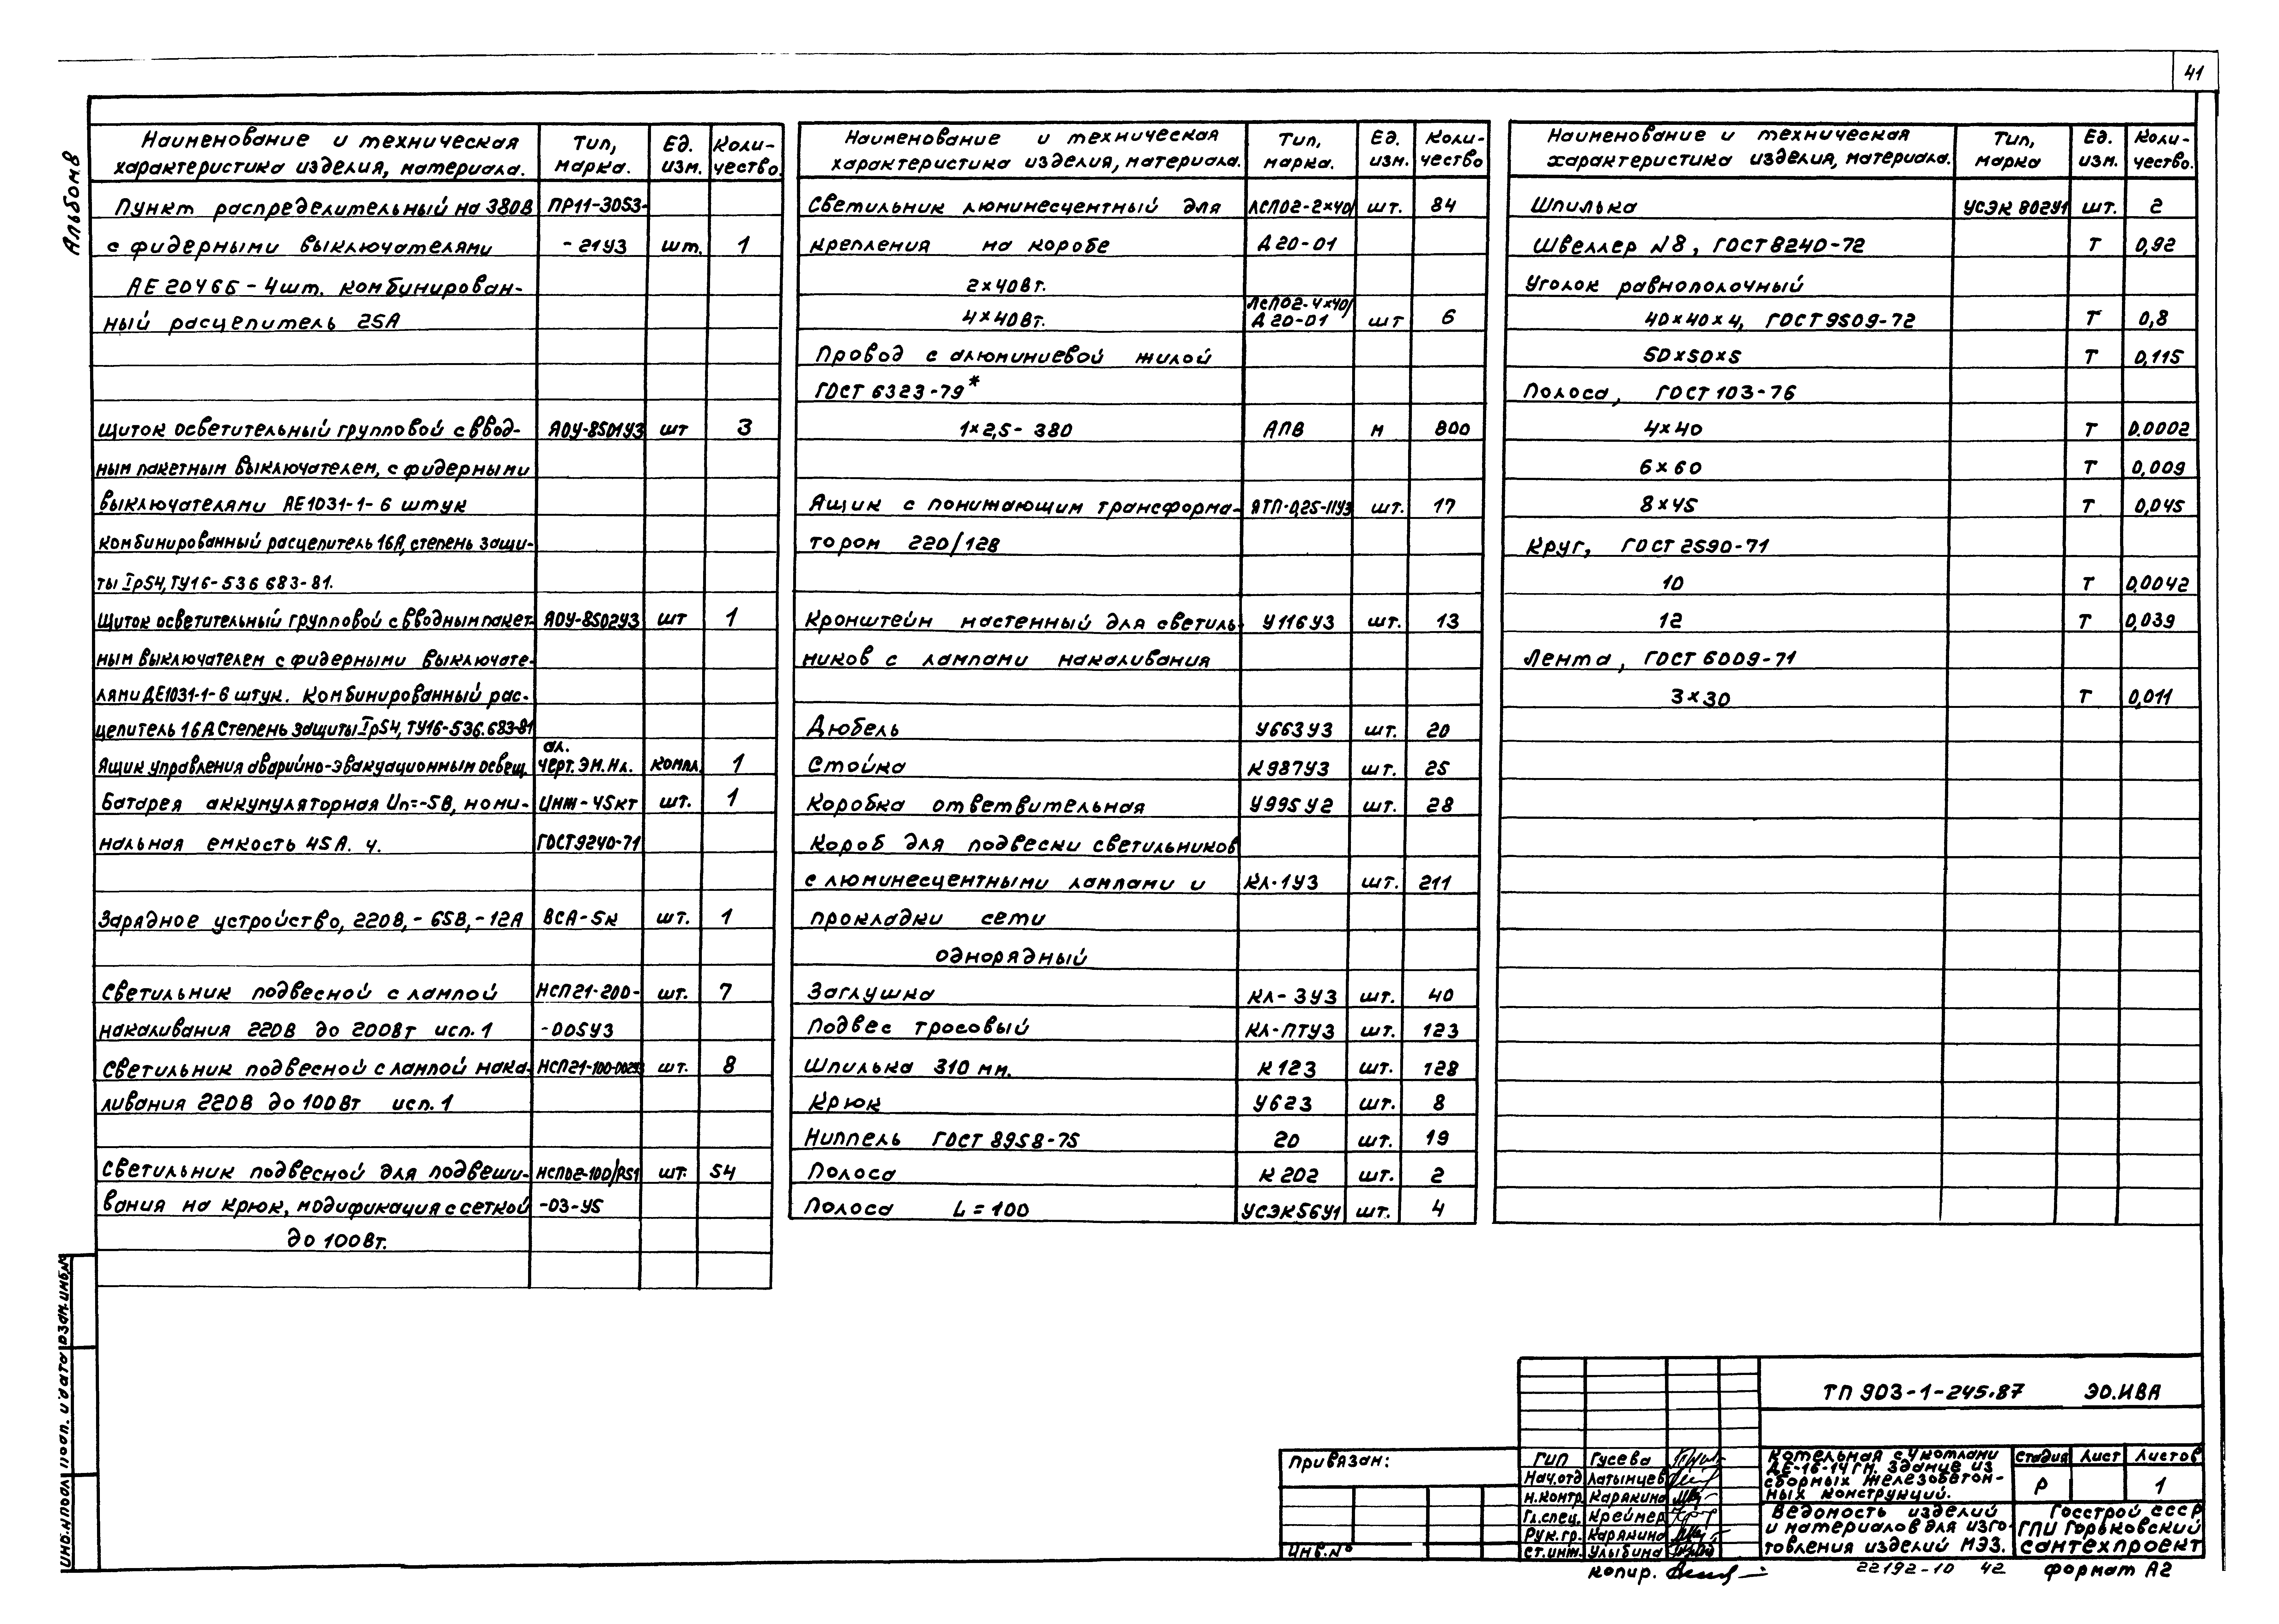 41
Альбом.8
Наименование и техническая характеристика изделия, материала. | Тип, марка. | Ед. изм. | Коли-чество.
Пункт распределительный на 380В | ПР11-3053-
с фидерными выключателями | -21У3 | шт. | 1
АЕ 2046Б - 4шт. комбинирован-
ный расцепитель 25А
Щиток осветительный групповой с ввод- | ЯОУ-8501У3 | шт | 3
ным пакетным выключателем, с фидерными
выключателями АЕ1031-1-6 штук
комбинированный расцепитель 16А, степень защи-
ты Iр54, ТУ16-536 683-81.
Щиток осветительный групповой с вводным пакет- | ЯОУ-8502У3 | шт | 1
ным выключателем с фидерными выключате-
лями АЕ1031-1-6 штук. Комбинированный рас-
цепитель 16А Степень защиты Iр54, ТУ16-536.683-81
Ящик управления аварийно-эвакуационным освещ. | ал. черт. ЭМ. Н1. | компл. | 1
Батарея аккумуляторная Uп=-5В, номи- | ЦНЖ-45кт | шт. | 1
нальная емкость 45А. ч. | ГОСТ9240-71
Зарядное устройство, 220В, -65В, -12А | ВСА-5к | шт. | 1
Светильник подвесной с лампой | НСП21-200- | шт. | 7
накаливания 220В до 200Вт исп. 1 | -005У3
Светильник подвесной с лампой нака- | НСП21-100-002У3 | шт. | 8
ливания 220В до 100Вт исп. 1
Светильник подвесной для подвеши- | НСП02-100/Р51 | шт. | 54
вания на крюк, модификация с сеткой | -03-У5
до 100Вт.
Наименование и техническая характеристика изделия, материала. | Тип, марка. | Ед. изм. | Коли-чество
Светильник люминесцентный для | ЛСП02-2×40/ | шт. | 84
крепления на коробе | Д20-01
2×40Вт.
4×40Вт. | ЛСП02-4×40/ Д20-01 | шт | 6
Провод с алюминиевой жилой
ГОСТ 6323-79*
1×2,5-380 | АПВ | м | 800
Ящик с понижающим трансформа- | ЯТП-0,25-11У3 | шт. | 17
тором 220/12В
Кронштейн настенный для светиль- | У116У3 | шт. | 13
ников с лампами накаливания
Дюбель | У663У3 | шт. | 20
Стойка | К987У3 | шт. | 25
Коробка ответвительная | У995У2 | шт. | 28
Короб для подвески светильников
с люминесцентными лампами и | КЛ-1У3 | шт. | 211
прокладки сети
однорядный
Заглушка | КЛ-3У3 | шт. | 40
Подвес тросовый | КЛ-ПТУ3 | шт. | 123
Шпилька 310 мм. | К123 | шт. | 128
Крюк | У623 | шт. | 8
Ниппель ГОСТ 8958-75 | 20 | шт. | 19
Полоса | К202 | шт. | 2
Полоса L=100 | УСЭК56У1 | шт. | 4
Наименование и техническая характеристика изделия, материала. | Тип, марка | Ед. изм. | Коли-чество.
Шпилька | УСЭК 802У1 | шт. | 2
Швеллер N8, ГОСТ8240-72 | Т | 0,92
Уголок равнополочный
40×40×4, ГОСТ9509-72 | Т | 0,8
50×50×5 | Т | 0,115
Полоса, ГОСТ103-76
4×40 | Т | 0.0002
6×60 | Т | 0,009
8×45 | Т | 0,045
Круг, ГОСТ2590-71
10 | Т | 0,0042
12 | Т | 0,039
Лента, ГОСТ6009-71
3×30 | Т | 0,011
ТП 903-1-245.87 ЭО.ИВА
Привязан:
Инв. №
ГИП Гусева
Нач.отд Латынцев
Н.контр. Карякина
Гл.спец. Креймер
Рук.гр. Карякина
Ст.инж. Улыбина
Котельная с 4 котлами
ДЕ-16-14ГМ. Здание из
сборных железобетон-
ных конструкций.
Стадия | Лист | Листов
Р | 1
Ведомость изделий
и материалов для изго-
товления изделий МЭЗ.
Госстрой СССР
ГПИ Горьковский
сантехпроект
копир.
22192-10 42
формат А2
Инв.№подл | Подп. и дата | Взам.инв.№